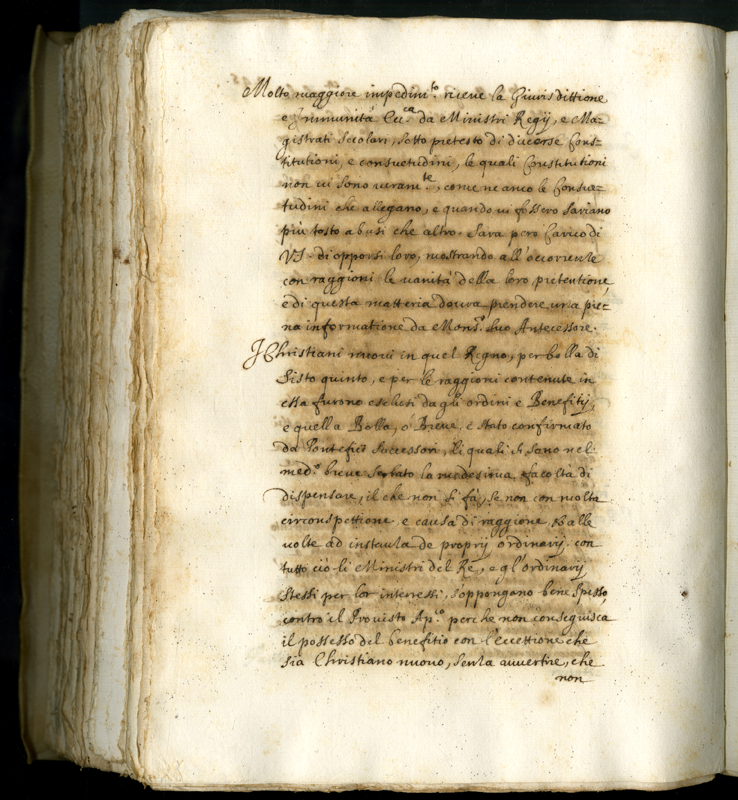 Molto maggiore impedim.to riceve la Giurisdittione
e Immunità Ecc.ca da Ministri Regij, e Ma=
gistrati secolari, sotto pretesto di diverse Cons=
titutioni, e consuetudini, le quali Constitutioni
non vi sono veram.te, come ne anco le Consue=
tudini che allegano, e quando vi fossero sariano
più tosto abusi che altro. Sara pero Carico di
VS. di opporsi loro, mostrando all'occorrente
con raggioni la vanità della loro pretentione,
e di questa matteria dovra prendere una pie=
na informatione da Mons.r suo Antecessore.
I Christiani nuovi in quel Regno, per bolla di
Sisto quinto, e per le raggioni contenute in
essa furono esclusi dagli ordini e Benefitij,
e quella Bolla, ò Breve, è stato confirmato
da Pontefici successori, li quali si sono nel
med.o breve serbato la medesima facoltà di
dispensare, il che non si fà, se non con molta
circonspettione, e causa di raggione, & alle
volte ad instanza de proprij ordinarij. con
tutto ciò li Ministri del Rè, e gl'ordinarij
stessi per lor interessi, s'oppongano bene spesso,
contro il Provisto Ap.co perche non conseguisca
il possesso del benefitio con l'eccettione che
sia Christiano nuovo, senza avvertire, che
non